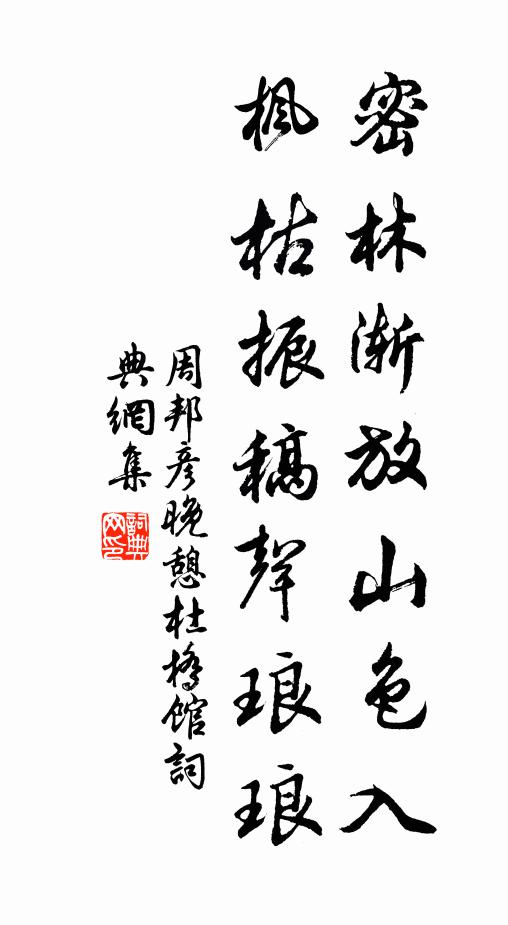 密林漸放山色入
楓枯振槁聲琅琅
周邦彥晚憩杜橋館詞
典網集
詞典
網印